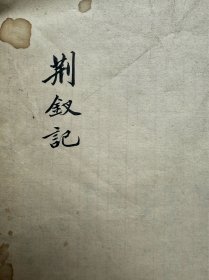 荆釵記